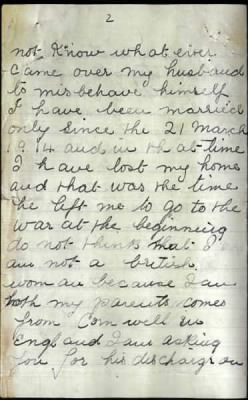 2
not Know what ever
came over my husband
to misbehave himself
I have been married
only since the 21 March
1914 and in that time
I have lost my home
and that was the time
he left me to go to the
war at the beginning
do not think that I
am not a british
woman because I am
both my parents comes
from Cornwell in
England I am asking
you for his discharge on